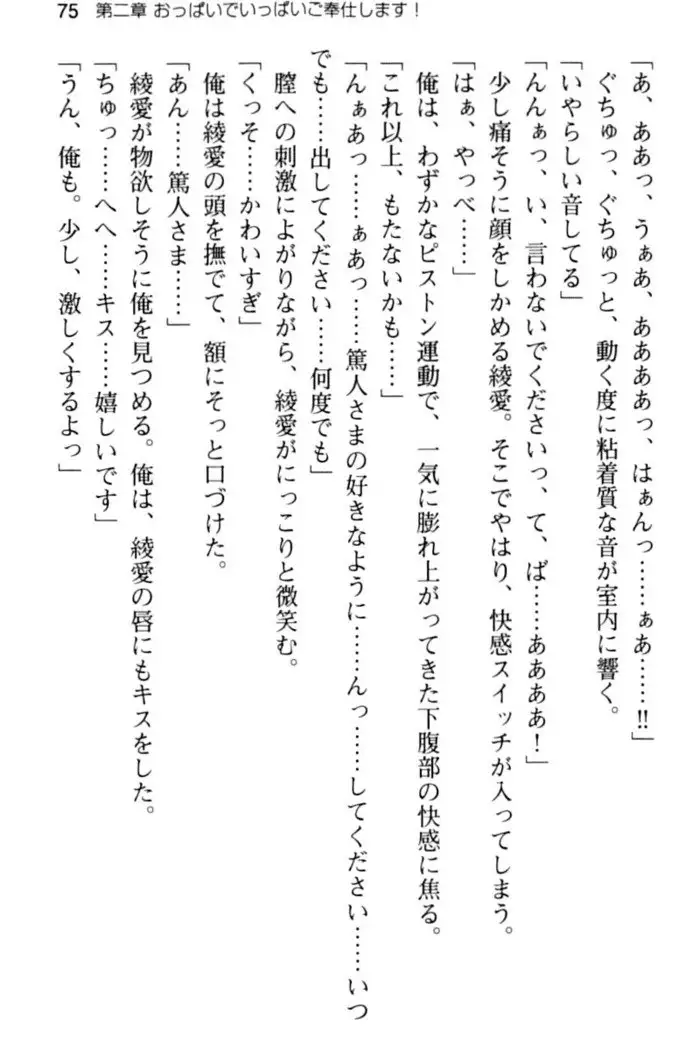 75 第二章 おっぱいでいっぱいご奉仕します!
「あ、ああっ、うぁあ、ああああっ、はぁんっ……ぁあ……!!」
ぐちゅっ、ぐちゅっと、動く度に粘着質な音が室内に響く。
「いやらしい音してる」
「んんぁっ、い、言わないでくださいっ、て、ば……ああああ!」
少し痛そうに顔をしかめる綾愛。そこでやはり、快感スイッチが入ってしまう。
「はぁ、やっべ……」
俺は、わずかなピストン運動で、一気に膨れ上がってきた下腹部の快感に焦る。
「これ以上、もたないかも……」
「んぁあっ……ぁあっ……篤人さまの好きなように……んっ……してください……いつ
でも……出してください……何度でも」
膣への刺激によがりながら、綾愛がにっこりと微笑む。
「くっそ……かわいすぎ」
俺は綾愛の頭を撫でて、額にそっと口づけた。
「あん……篤人さま……」
綾愛が物欲しそうに俺を見つめる。俺は、綾愛の唇にもキスをした。
「ちゅっ……へへ……キス……嬉しいです」
「うん、俺も。少し、激しくするよっ」